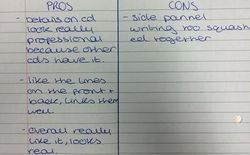 PROS
- Details on cd
look really
professional
because other
cds have it.
- like the lines
on the front +
back, links them
well.
- overall really
like it, looks
real.
CONS
- side pannel
writing too squash
ed together